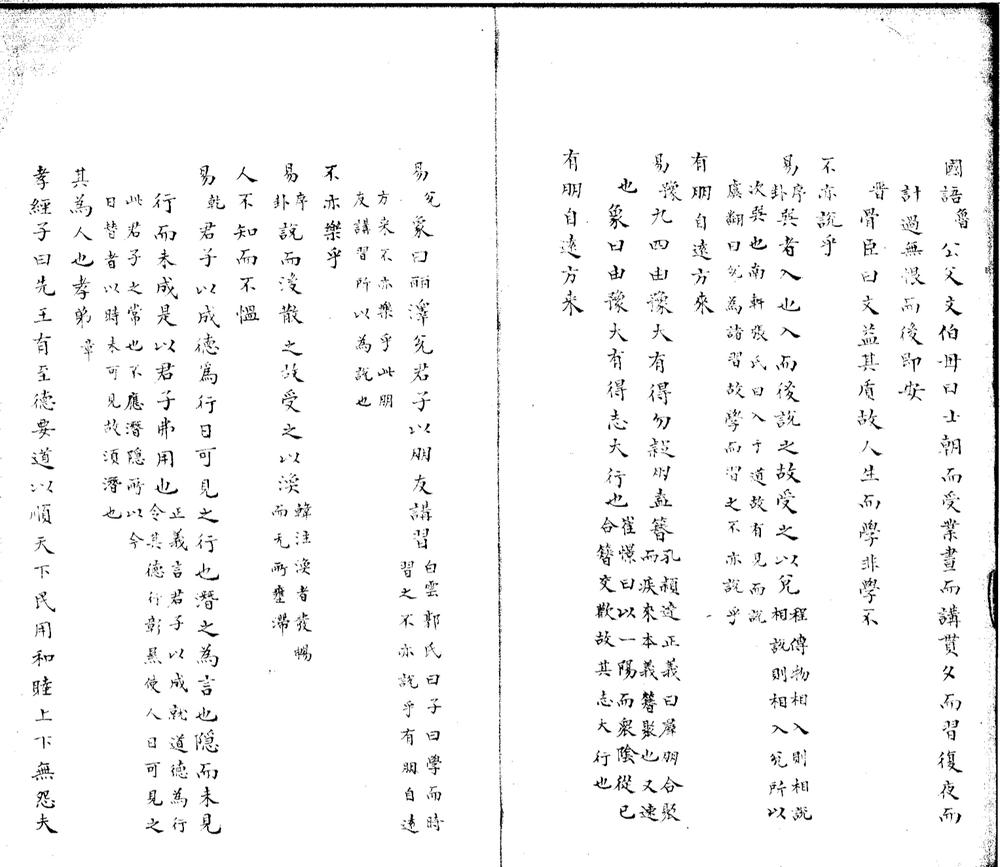 國語魯公父文伯母曰士朝而受業晝而講貫夕而習復夜而
計過無恨而後即安
晉胥臣曰文益其质故人生而學非學不
不亦説乎
易序卦巽者入也入而後説之故受之以兌程傳物相入則相説相説則相入兌所以
次巽也南軒張氏曰入于道故有見而説
虞翻曰兌為講習故學而習之不亦説乎
有朋自遠方來
易豫九四由豫大有得勿疑朋盍簪孔穎達正義曰羣朋合聚而疾來本義簪聚也又速
也象曰由豫大有得志大行也崔憬曰以一陽而衆陰從己合簪交歡故其志大行也
有朋自遠方來
易兌象曰丽澤兌君子以朋友講習白雲郭氏曰子曰學而時習之不亦説乎有朋自遠
方來不亦樂乎此朋
友講習所以為説也
不亦樂乎
易序卦説而後散之故受之以渙韓注渙者發暢而无所壅滯
人不知而不慍
易乾君子以成德為行日可見之行也潛之為言也隱而未見
行而未成是以君子弗用也正義言君子以成就道德為行令其德行彰顯使人日可見之
此君子之常也不應潛隱所以今
日潛者以時未可見故須潛也
其為人也孝弟章
孝經子曰先王有至德要道以順天下民用和睦上下無怨夫